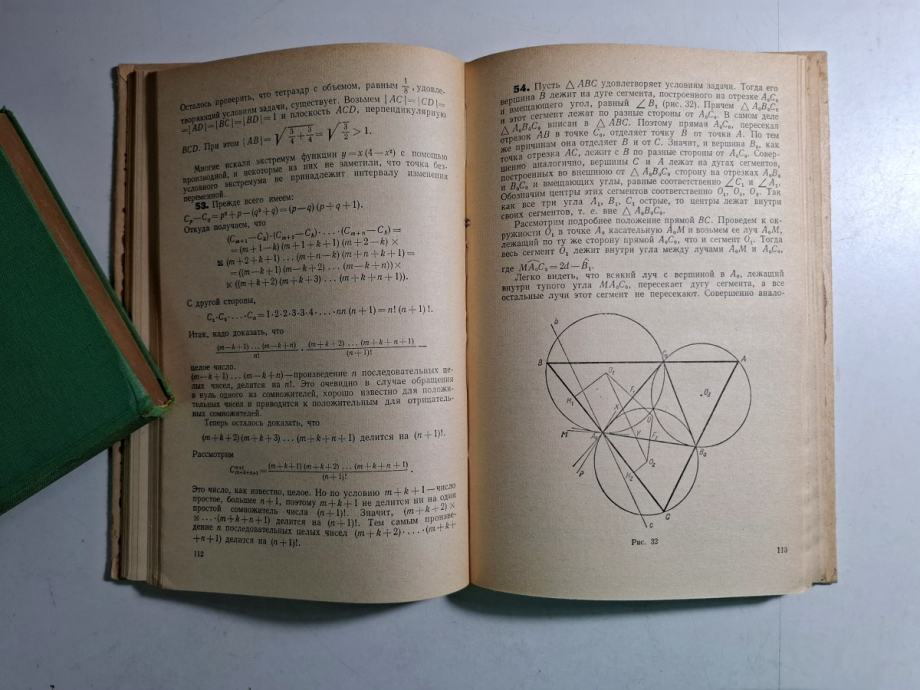 Осталось проверить, что тетраэдр с объемом, равным 1/8, удовле-
творяющий условиям задачи, существует. Возьмем |AC|=|CD|=
=|AD|=|BC|=|BD|=1 и плоскость ACD, перпендикулярную
BCD. При этом |AB|=√(3/4+3/4)=√(3/2)>1.
Многие искали экстремум функции y=x(4−x²) с помощью
производной, и некоторые из них не заметили, что точка без-
условного экстремума не принадлежит интервалу изменения
переменной.
53. Прежде всего имеем:
C_p−C_q=p²+p−(q²+q)=(p−q)(p+q+1).
Откуда получаем, что
(C_{m+1}−C_k)(C_{m+2}−C_k)·...·(C_{m+n}−C_k)=
=(m+1−k)(m+1+k+1)(m+2−k)×
×(m+2+k+1)...(m+n−k)(m+n+k+1)=
=((m−k+1)(m−k+2)...(m−k+n))×
×((m+k+2)(m+k+3)...(m+k+n+1)).
С другой стороны,
C₁·C₂·...·C_n=1·2·2·3·3·4·...·nn(n+1)=n!(n+1)!.
Итак, надо доказать, что
(m−k+1)...(m−k+n)/n! · (m+k+2)...(m+k+n+1)/(n+1)! —
целое число.
(m−k+1)...(m−k+n)—произведение n последовательных це-
лых чисел, делится на n!. Это очевидно в случае обращения
в нуль одного из сомножителей, хорошо известно для положи-
тельных чисел и приводится к положительным для отрицатель-
ных сомножителей.
Теперь осталось доказать, что
(m+k+2)(m+k+3)...(m+k+n+1) делится на (n+1)!.
Рассмотрим
C^{n+1}_{m+k+n+1}=(m+k+1)(m+k+2)...(m+k+n+1)/(n+1)!.
Это число, как известно, целое. Но по условию m+k+1—число
простое, большее n+1, поэтому m+k+1 не делится ни на один
простой сомножитель числа (n+1)!. Значит, (m+k+2)×
×...·(m+k+n+1) делится на (n+1)!. Тем самым произве-
дение n последовательных целых чисел (m+k+2)·...·(m+k+
+n+1) делится на (n+1)!.
112
54. Пусть △ABC удовлетворяет условиям задачи. Тогда его
вершина B лежит на дуге сегмента, построенного на отрезке A₀C₀
и вмещающего угол, равный ∠B₁ (рис. 32). Причем △A₀B₀C₀
и этот сегмент лежат по разные стороны от A₀C₀. В самом деле
△A₀B₀C₀ вписан в △ABC. Поэтому прямая A₀C₀, пересекая
отрезок AB в точке C₀, отделяет точку B от точки A. По тем
же причинам она отделяет B и от C. Значит, и вершина B₀, как
точка отрезка AC, лежит с B по разные стороны от A₀C₀. Совер-
шенно аналогично, вершины C и A лежат на дугах сегментов,
построенных во внешнюю от △A₀B₀C₀ сторону на отрезках A₀B₀
и B₀C₀ и вмещающих углы, равные соответственно ∠C₁ и ∠A₁.
Обозначим центры этих сегментов соответственно O₁, O₂, O₃. Так
как все три угла A₁, B₁, C₁ острые, то центры лежат внутри
своих сегментов, т. е. вне △A₀B₀C₀.
Рассмотрим подробнее положение прямой BC. Проведем к ок-
ружности O₁ в точке A₀ касательную A₀M и возьмем ее луч A₀M,
лежащий по ту же сторону прямой A₀C₀, что и сегмент O₁. Тогда
весь сегмент O₁ лежит внутри угла между лучами A₀M и A₀C₀,
где MA₀C₀=2d−B̂₁.
Легко видеть, что всякий луч с вершиной в A₀, лежащий
внутри тупого угла MA₀C₀, пересекает дугу сегмента, а все
остальные лучи этот сегмент не пересекают. Совершенно анало-
b
B
C₀
A
O₁
O₃
M₁
F₁
X
O
M
A₀
Y
F₂
B₀
O₂
P
M₂
C
c
Рис. 32
113